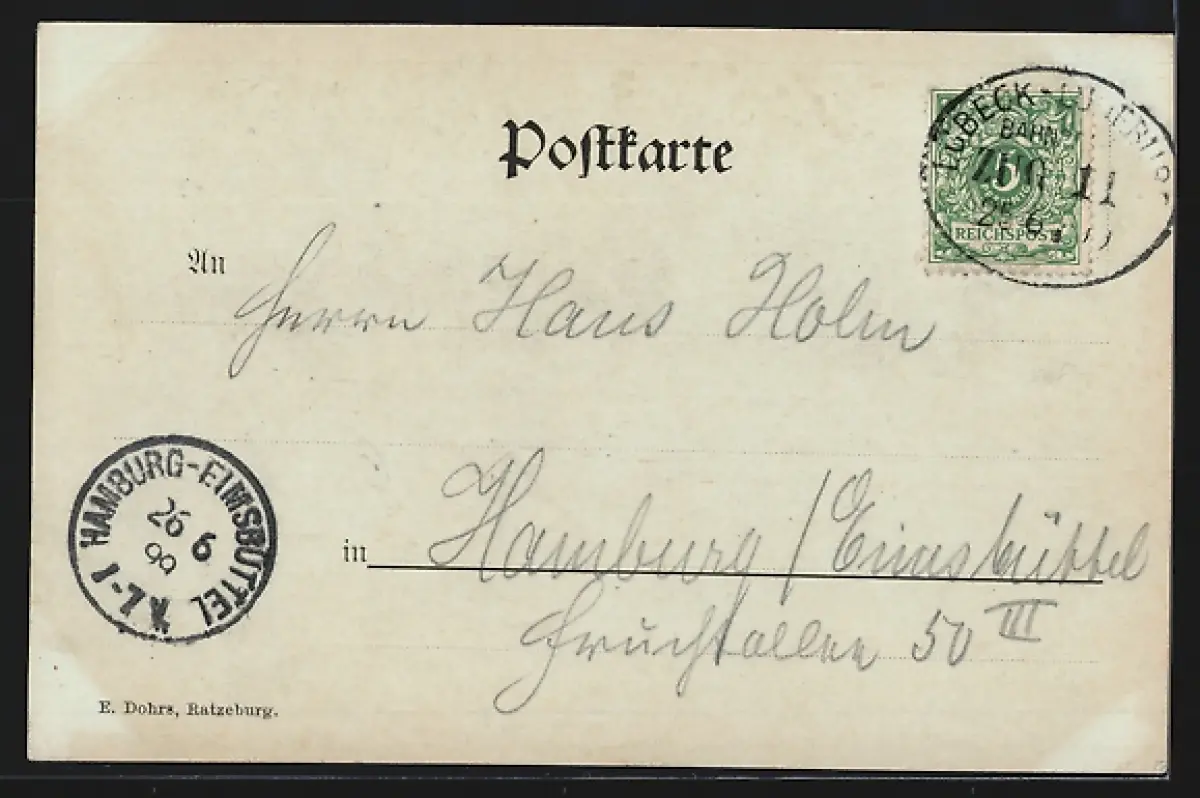 Postkarte
LÜBECK-LÜNEBURG
BAHN
ZUG 11
25 6
5
REICHSPOST
An
Herrn Hans Holm
HAMBURG-EIMSBÜTTEL
26 6
99
in Hamburg / Eimsbüttel
Fruchtallee 50 III
E. Dohrs, Ratzeburg.